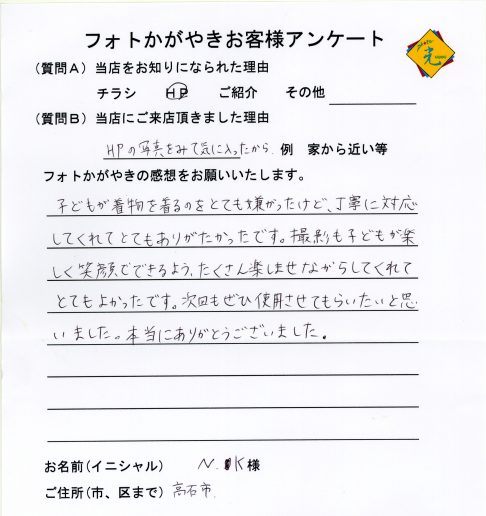 フォトかがやきお客様アンケート
(質問A)当店をお知りになられた理由
チラシ HP ご紹介 その他
(質問B)当店にご来店頂きました理由
HPの写真をみて気に入ったから. 例 家から近い等
フォトかがやきの感想をお願いいたします。
子どもが着物を着るのをとても嫌がったけど、丁寧に対応
してくれてとてもありがたかったです。撮影も子どもが楽
しく笑顔でできるよう、たくさん楽しませながらしてくれて
とてもよかったです。次回もぜひ使用させてもらいたいと思
いました。本当にありがとうございました。
お名前(イニシャル) N. K様
ご住所(市、区まで) 高石市.